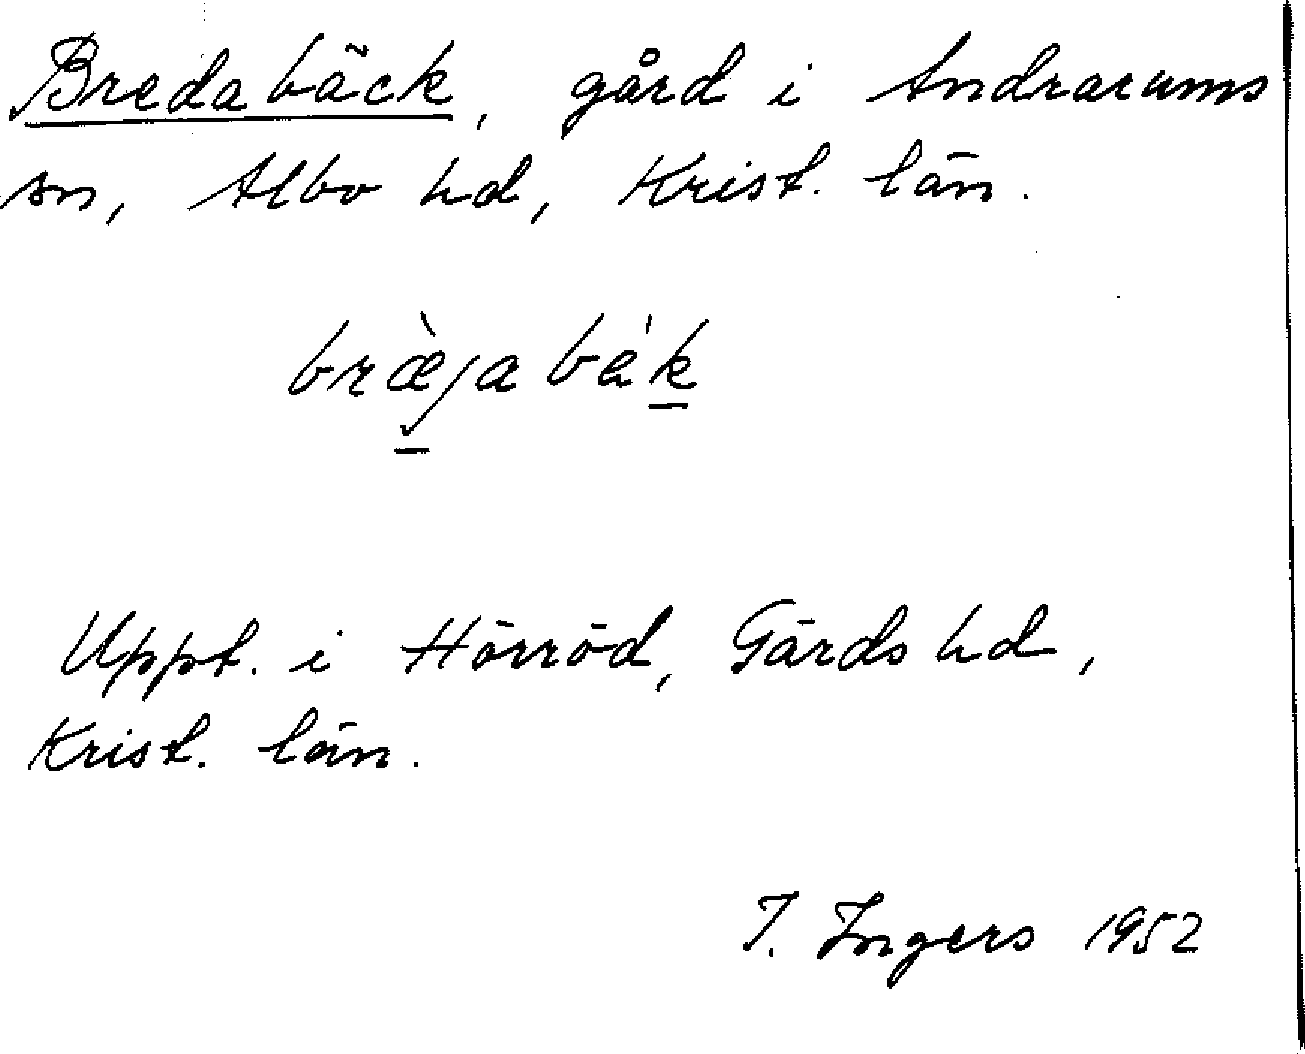 Bredabäck, gård i Andrarums
sn, Albo hd, Krist. län.
bræ̀jabák
Uppt. i Hörröd, Gärds hd,
Krist. län.
I. Ingers 1952